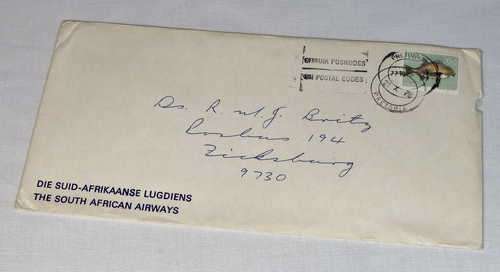 GEBRUIK POSKODES
USE POSTAL CODES
PRETORIA
Ds. R. W. J. Britz
Posbus 194
Zieksburg
9730
DIE SUID-AFRIKAANSE LUGDIENS
THE SOUTH AFRICAN AIRWAYS